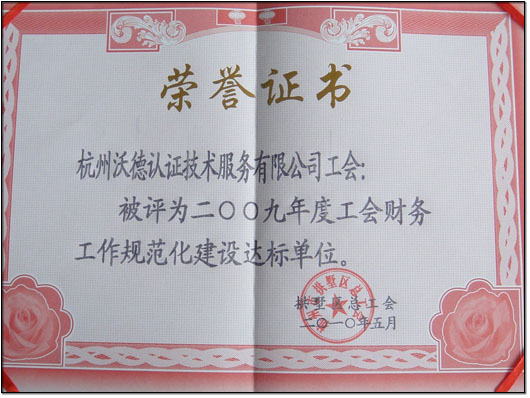 荣誉证书
杭州沃德认证技术服务有限公司工会:
被评为二〇〇九年度工会财务
工作规范化建设达标单位。
拱墅区总工会
二〇一〇年五月